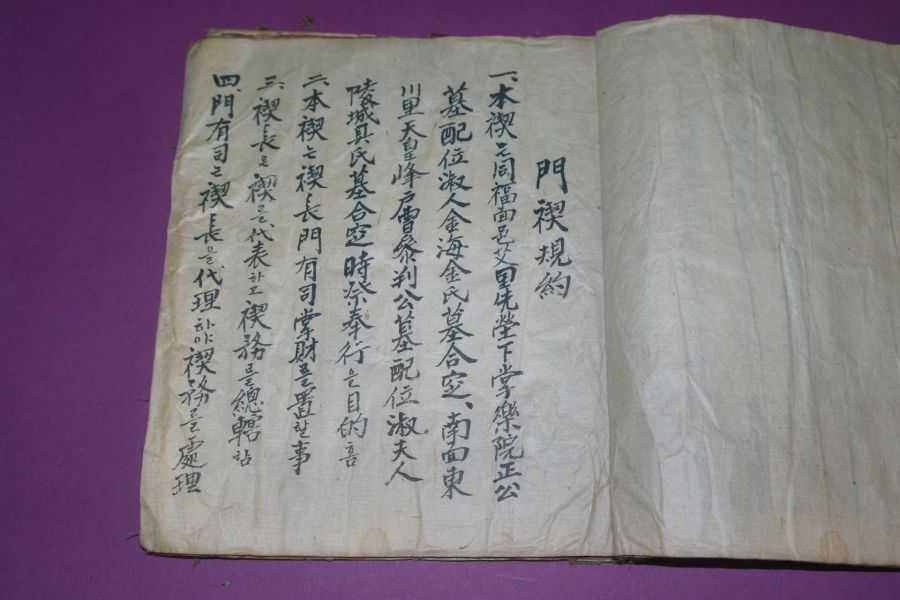 門禊規約
一、本禊는同福面邑艾里先塋下掌樂院正公
墓配位淑人金海金氏墓合定、南面東
川里天皇峰戶曹參判公墓配位淑夫人
陵城具氏墓合定時祭奉行을目的홈
二、本禊는禊長門有司掌財를置할事
三、禊長은禊를代表하고禊務를總轄함
四、門有司는禊長을代理하야禊務를處理